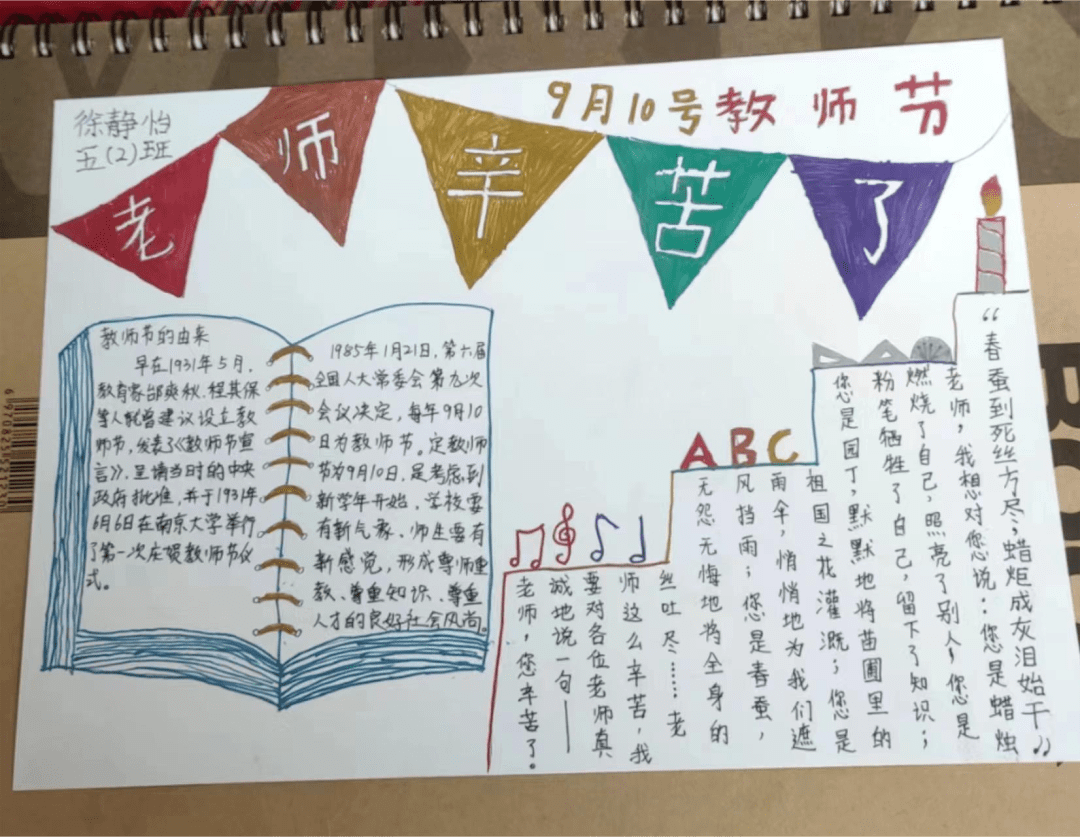 徐静怡
五(2)班
9月10号教师节
老师辛苦了
教师节的由来
早在1931年5月,
教育家邰爽秋、程其保
等人就曾建议设立教
师节,发表了《教师节宣
言》,呈请当时的中央
政府批准,并于1931年
6月6日在南京大学举行
了第一次庆贺教师节仪
式。
1985年1月21日,第六届
全国人大常委会第九次
会议决定,每年9月10
日为教师节。定教师
节为9月10日,是考虑到
新学年开始,学校要
有新气象、师生要有
新感觉,形成尊师重
教、尊重知识、尊重
人才的良好社会风尚。
ABC
“春蚕到死丝方尽,蜡炬成灰泪始干”
老师,我想对您说:您是蜡烛
燃烧了自己,照亮了别人,您是
粉笔牺牲了自己,留下了知识;
您是园丁,默默地将苗圃里的
祖国之花灌溉;您是
雨伞,悄悄地为我们遮
风挡雨;您是春蚕,
无怨无悔地将全身的
丝吐尽……老
师这么辛苦,我
要对各位老师真
诚地说一句——
老师,您辛苦了。
6970825